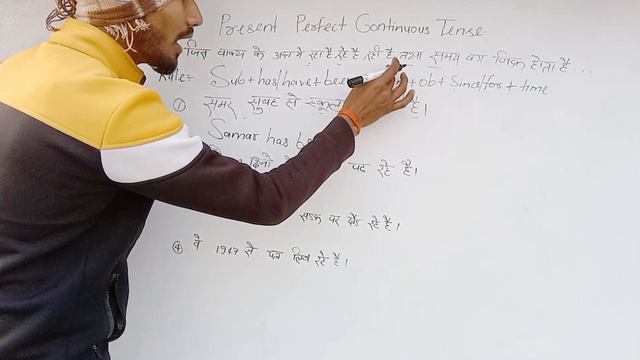 Present Perfect Continuous Tense
जिस वाक्य के अन्त में रहा है, रहे है, रही है, तथा समय का जिक्र होता है ...
Rule= Sub+has/have+bee +ob+ Since/for + time
① समर सुबह से स्कूल है।
Samar has be
दिनों पढ़ रहे है।
सड़क पर दौड़ रहे है।
④ वे 1947 से पत्र लिख रहे है।